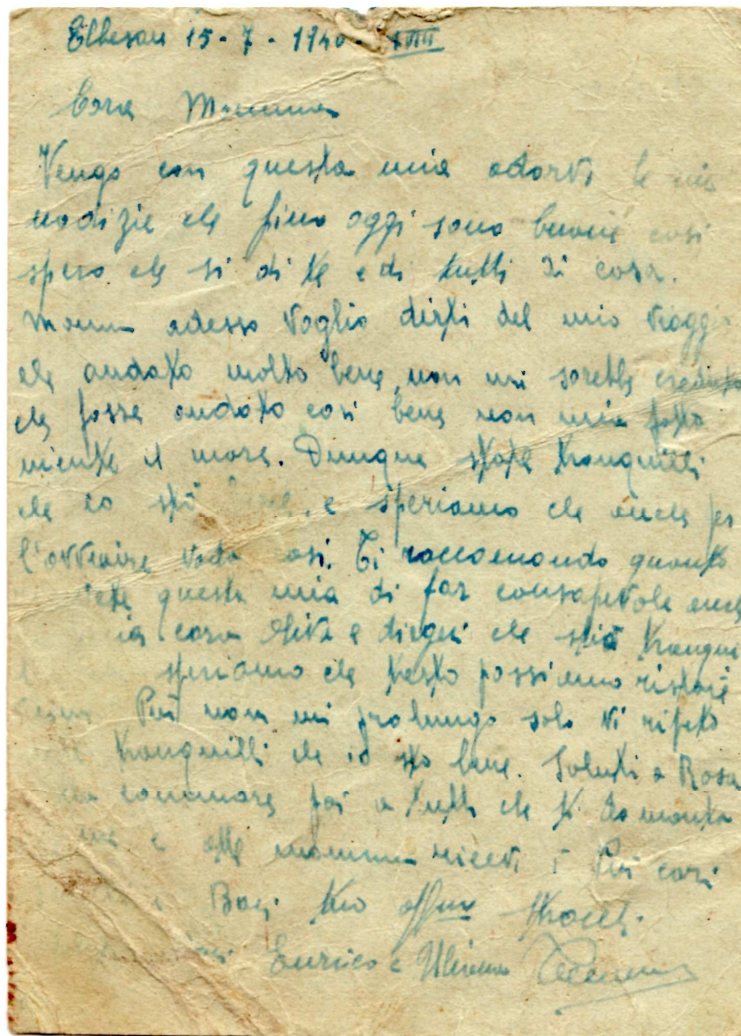 Elbesan 15-7-1940- XVIII
Cara Mamma
Vengo con questa mia adarti le mie
nodizie che fino oggi sono buone così
spero che si di te e di tutti di casa.
Mamma adesso voglio dirti del mio viaggi
che andato molto bene, non mi sarebbe creduto
che fosse andato così bene non mia fatto
niente il mare. Dunque state tranquilli
che io sto bene, e speriamo che anche per
l'avvenire vada così. Ti raccomando quanto
questa mia di far consapevole anche
mia cara e dirgei che stia tranqui
speriamo che presto possiamo ristare
Più non mi prolungo solo vi ripeto
tranquilli che io sto bene. Saluti a Rosa
commare poi a tutti che ti domanta
me e alle mamma ricevi i Più cari
Baci tuo affmo
Enrico e